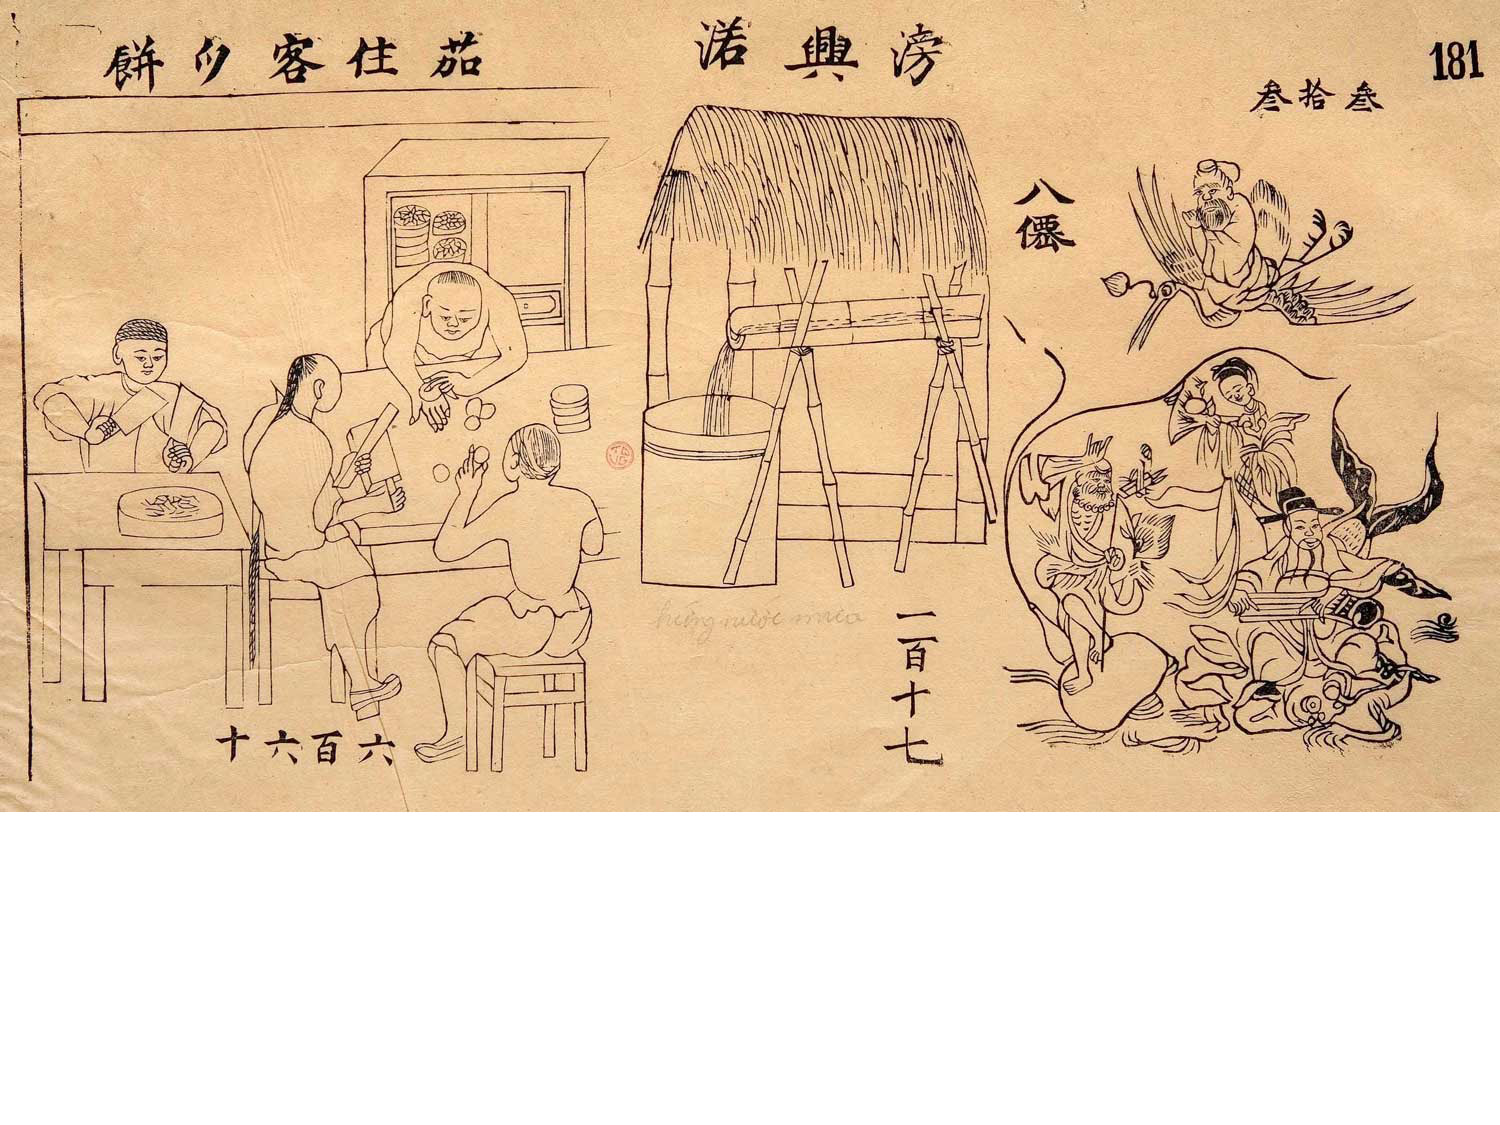 181
叁拾叁
八僊
滂興渃
一百十七
hứng nước mưa
茹住客爫餅
六百六十